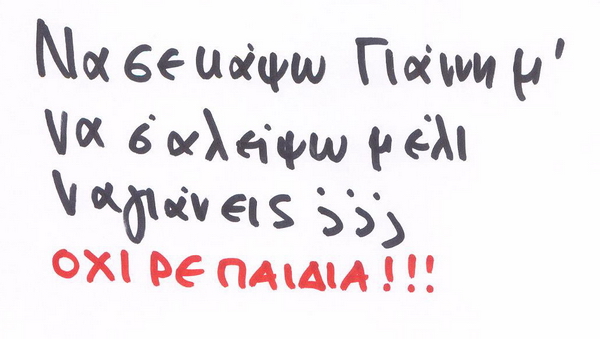 Να σε κάψω Γιάννη μ'
να σ' αλείψω μέλι
να γιάνεις ;;;
ΟΧΙ ΡΕ ΠΑΙΔΙΑ!!!